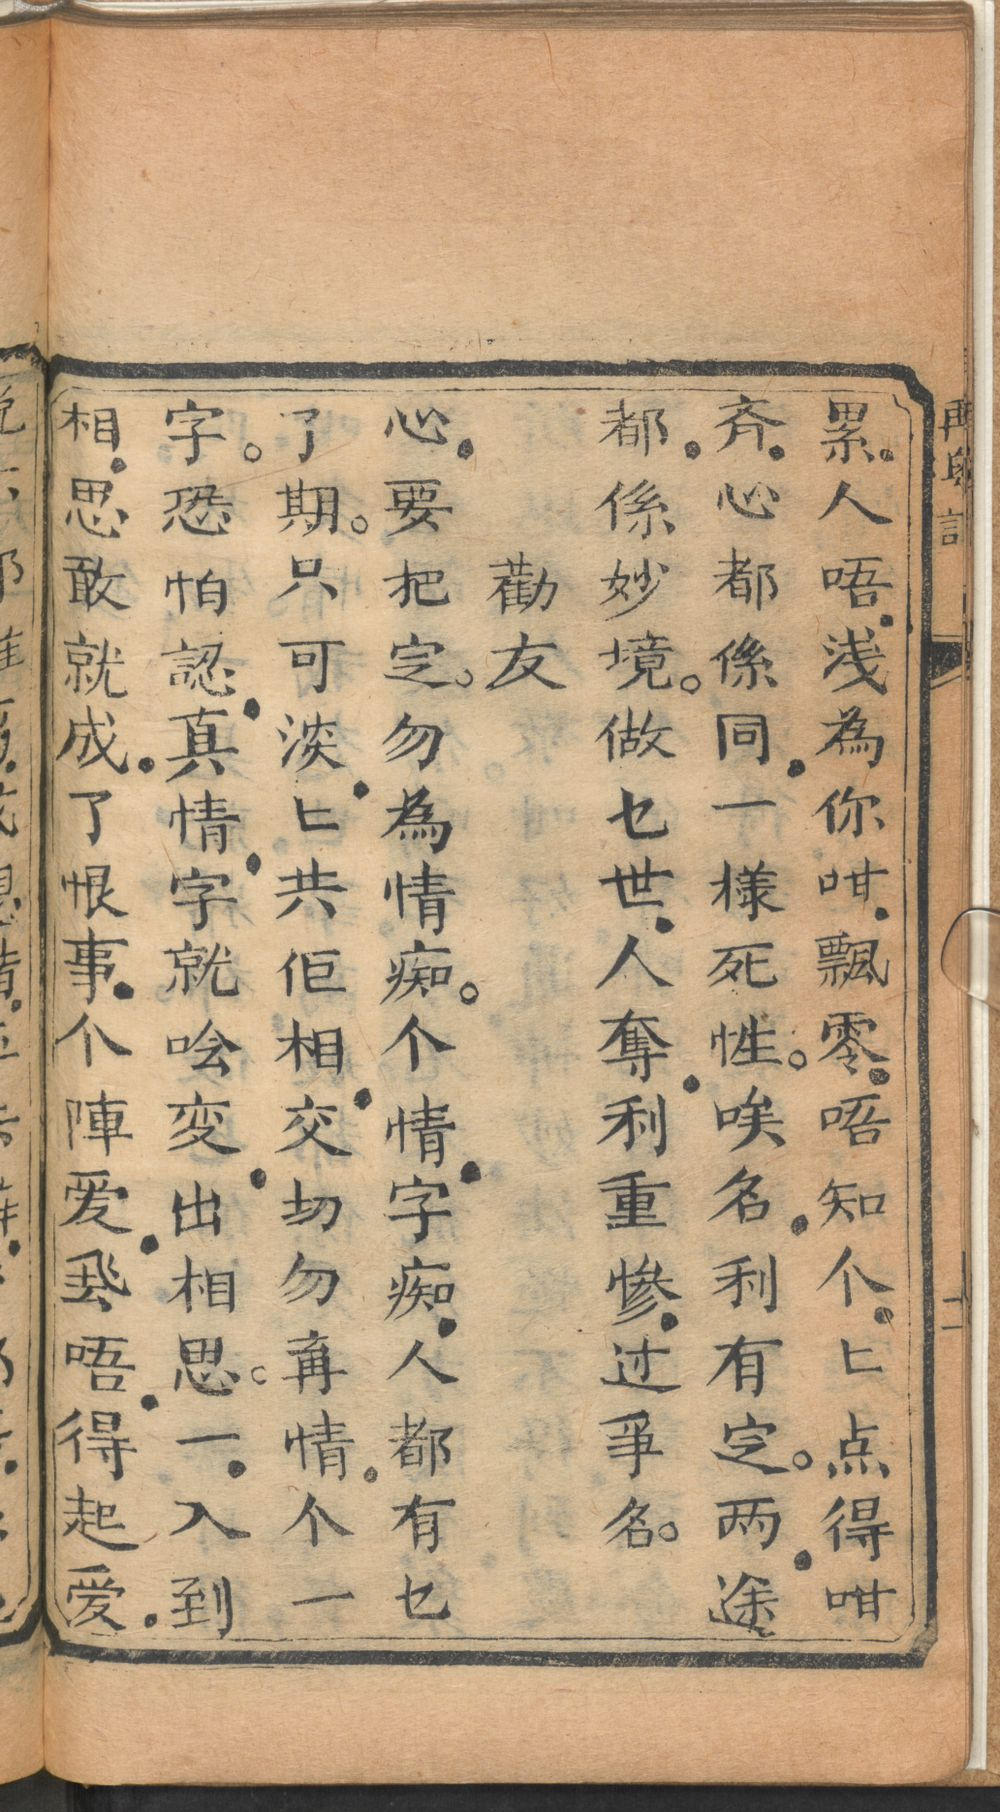 累人唔浅為你咁飄零唔知个匕点得咁
斉心都係同一樣死性唉名利有定两途
都係妙境做乜世人奪利重惨过爭名
勸友
心要把定勿為情痴个情字痴人都有乜
了期只可淡匕共佢相交切勿再情个一
字恐怕認真情字就唅变出相思一入到
相思敢就成了恨事个陣爱飛唔得起爱
再
二